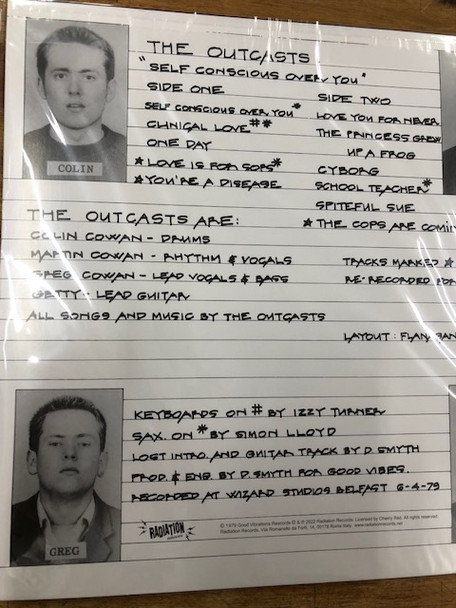 THE OUTCASTS
"SELF CONSCIOUS OVER YOU"
SIDE ONE
SELF CONSCIOUS OVER YOU*
CLINICAL LOVE#*
ONE DAY
★LOVE IS FOR SOPS*
★YOU'RE A DISEASE
SIDE TWO
LOVE YOU FOR NEVER
THE PRINCESS GREW
UP A FROG
CYBORG
SCHOOL TEACHER*
SPITEFUL SUE
★ THE COPS ARE COMIN
COLIN
THE OUTCASTS ARE:
COLIN COWAN - DRUMS
MARTIN COWAN - RHYTHM & VOCALS
GREG COWAN - LEAD VOCALS & BASS
GETTY - LEAD GUITAR
ALL SONGS AND MUSIC BY THE OUTCASTS
TRACKS MARKED ★
RE-RECORDED FOR
LAYOUT:
KEYBOARDS ON # BY IZZY TURNER
SAX. ON * BY SIMON LLOYD
LOST INTRO. AND GUITAR TRACK BY D. SMYTH
PROD. & ENG. BY D. SMYTH FOR GOOD VIBES.
RECORDED AT WIZARD STUDIOS BELFAST 6-4-79
GREG
RADIATION
© 1979 Good Vibrations Records © & ℗ 2022 Radiation Records. Licensed by Cherry Red. All rights reserved.
Radiation Records, Via Romanello da Forlì, 14, 00176 Roma Italy www.radiationrecords.net